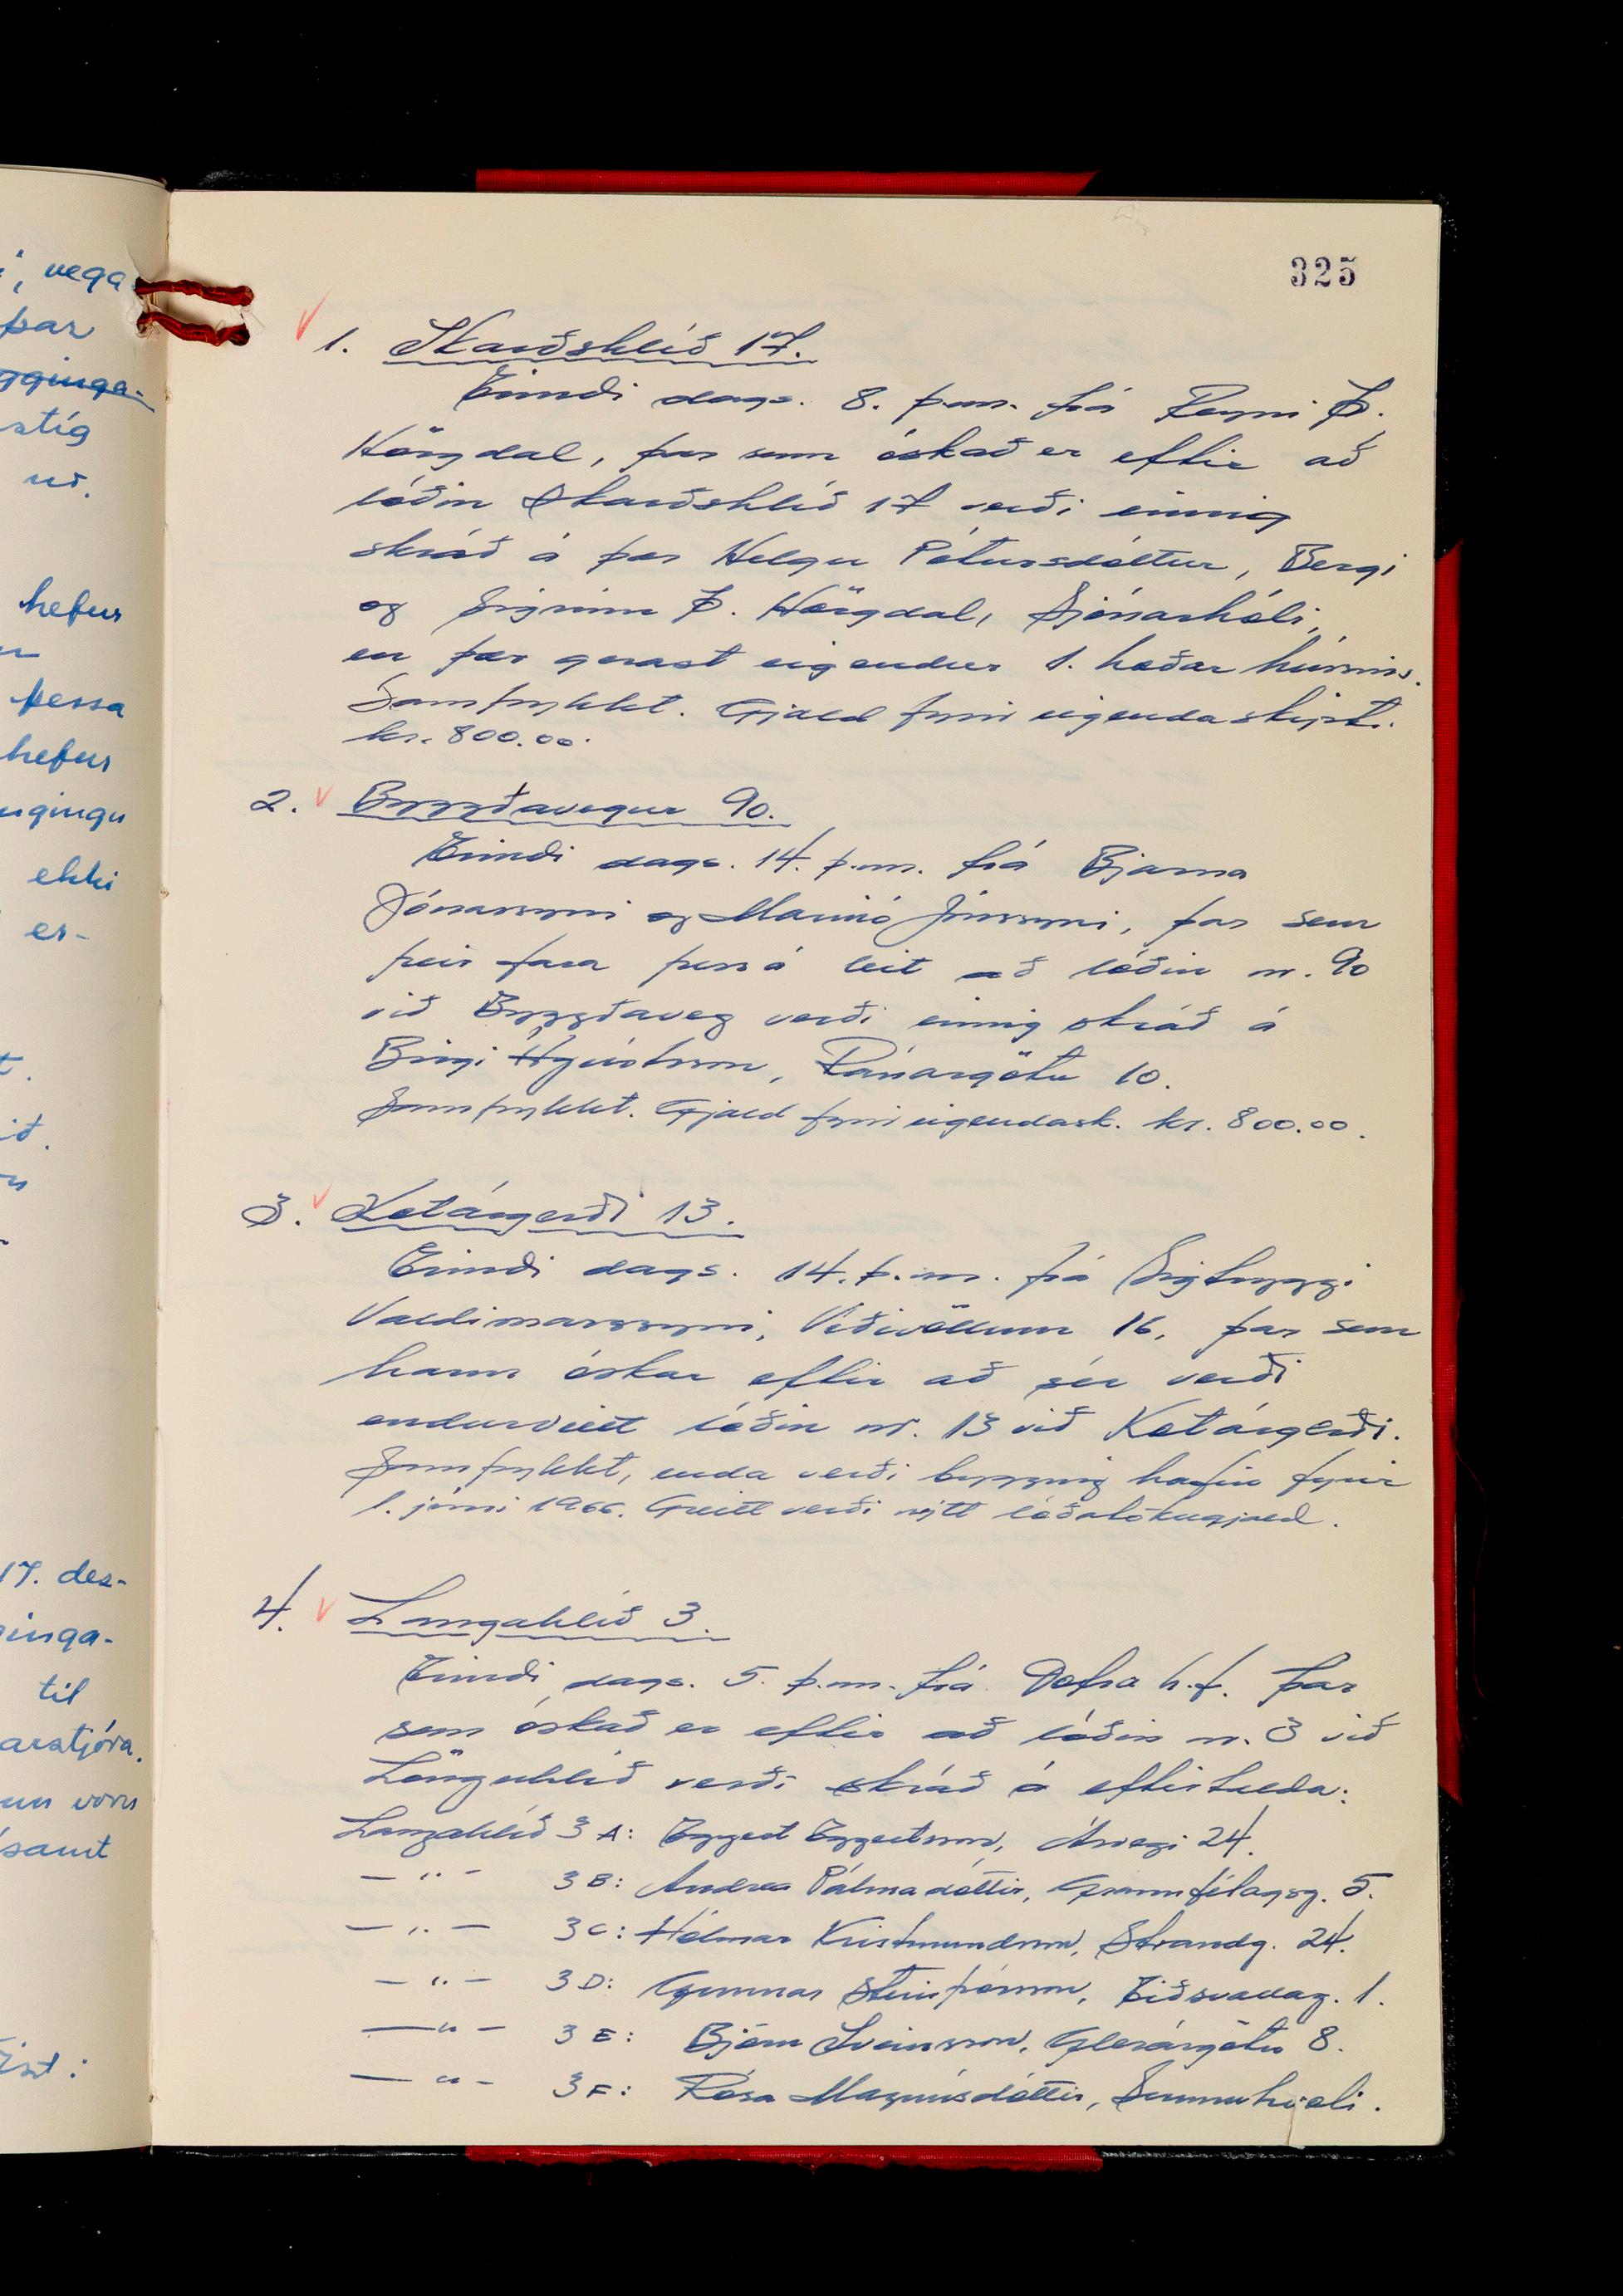 325
1. Skarðshlíð 17.
Erindi dags. 8. þ.m. frá Reyni Þ.
Hörgdal, þar sem óskað er eftir að
lóðin Skarðshlíð 17 verði einnig
skráð á þær Helgu Pétursdóttur, Bergi
og Sigrúnu Þ. Hörgdal, Sjónarhóli,
en þær gerast eigendur 1. hæðar hússins.
Samþykkt. Gjald fyrir eigendaskipti.
kr. 800.00.
2. Byggðavegur 90.
Erindi dags. 14. þ.m. frá Bjarna
Jónassyni og Marinó Jónssyni, þar sem
þeir fara þess á leit að lóðin nr. 90
við Byggðaveg verði einnig skráð á
Birgi Ágústsson, Ránargötu 10.
Samþykkt. Gjald fyrir eigendask. kr. 800.00.
3. Kotárgerði 13.
Erindi dags. 14. þ.m. frá Sigtryggi
Valdimarssyni, Víðivöllum 16, þar sem
hann óskar eftir að sér verði
endurveitt lóðin nr. 13 við Kotárgerði.
Samþykkt, enda verði bygging hafin fyrir
1. júní 1966. Greitt verði nýtt lóðatökugjald.
4. Langahlíð 3.
Erindi dags. 5. þ.m. frá Dofra h.f. þar
sem óskað er eftir að lóðin nr. 3 við
Lönguhlíð verði skráð á eftirtalda:
Langahlíð 3A: Eggert Eggertsson, Ásvegi 24.
— " — 3B: Andrea Pálmadóttir, Gránufélagsg. 5.
— " — 3C: Hólmar Kristmundsson, Strandg. 24.
— " — 3D: Gunnar Steinþórsson, Eiðsvallag. 1.
— " — 3E: Björn Sveinsson, Glerárgötu 8.
— " — 3F: Rósa Magnúsdóttir, Sunnuhvoli.
i, vega-
þar
stíg
hefur
þessa
hefur
ekki
er-
17. des-
inga-
til
arstjóra.